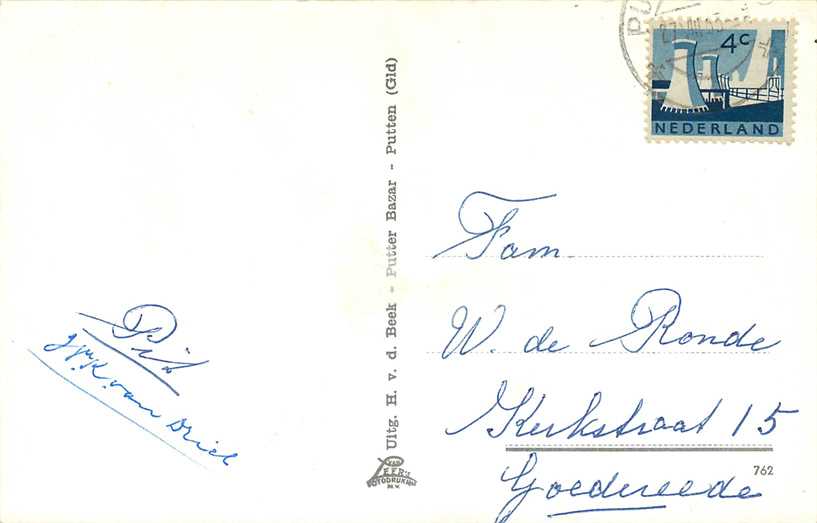 4c
NEDERLAND
Uitg. H. v. d. Beek - Putter Bazar - Putten (Gld)
Fam.
W. de Ronde
Kerkstraat 15
Goedereede
762
van Driel
VAN LEER'S
FOTODRUK
N.V.